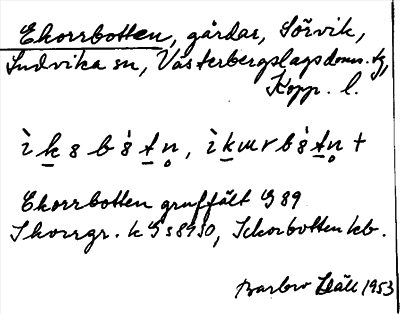 Ekorrbotten, gårdar, Sörvik,
Ludvika sn, Västerbergslags doms. tg,
Kopp. l.
Ekorrbotten gruffält G 89
Ikorrgr. k G s 8930, Ickorbotten kb.
Barbro Däll 1953